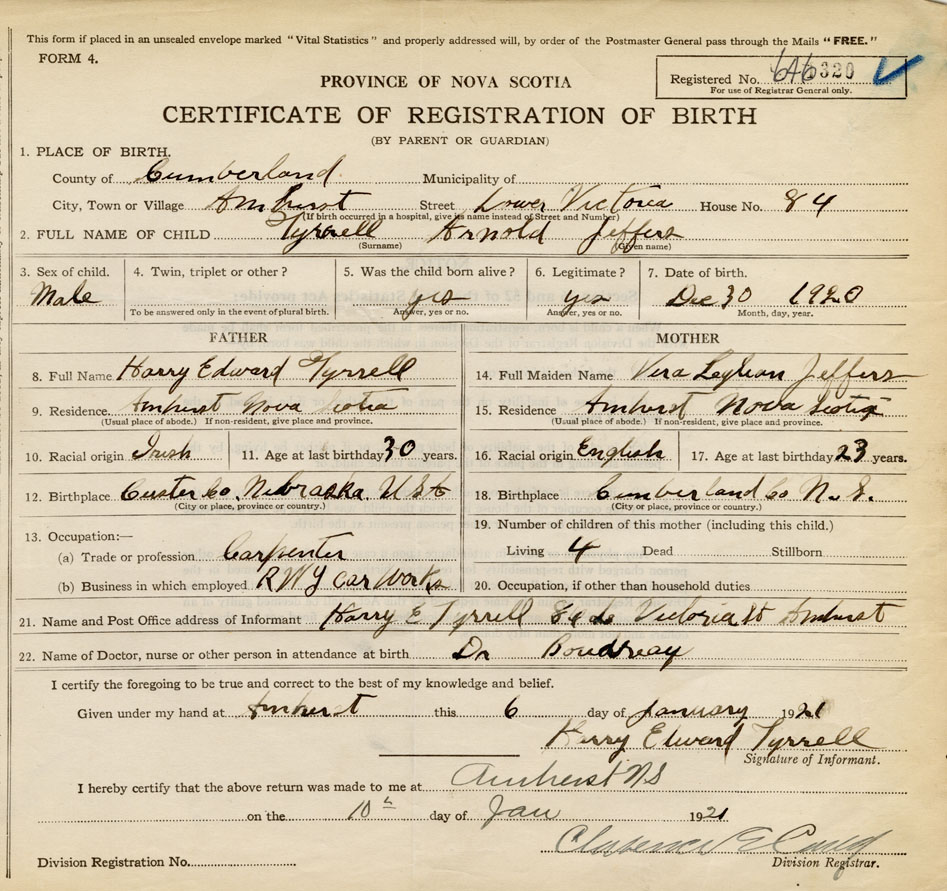 This form if placed in an unsealed envelope marked "Vital Statistics" and properly addressed will, by order of the Postmaster General pass through the Mails "FREE."
FORM 4.
Registered No. 646320
For use of Registrar General only.
PROVINCE OF NOVA SCOTIA
CERTIFICATE OF REGISTRATION OF BIRTH
(BY PARENT OR GUARDIAN)
1. PLACE OF BIRTH.
County of Cumberland Municipality of
City, Town or Village Amherst Street Lower Victoria House No. 84
(If birth occurred in a hospital, give its name instead of Street and Number)
2. FULL NAME OF CHILD Tyrrell Arnold Jeffers
(Surname) (Given name)
3. Sex of child. 4. Twin, triplet or other? 5. Was the child born alive? 6. Legitimate? 7. Date of birth.
Male yes yes Dec 30 1920
To be answered only in the event of plural birth. Answer, yes or no. Answer, yes or no. Month, day, year.
FATHER MOTHER
8. Full Name Harry Edward Tyrrell 14. Full Maiden Name Vera Jeffers
9. Residence. Amherst Nova Scotia 15. Residence Amherst Nova Scotia
(Usual place of abode.) If non-resident, give place and province. (Usual place of abode.) If non-resident, give place and province.
10. Racial origin Irish 11. Age at last birthday 30 years. 16. Racial origin English 17. Age at last birthday 23 years.
12. Birthplace Custer Co. Nebraska. U S A 18. Birthplace Cumberland Co N.S.
(City or place, province or country.) (City or place, province or country.)
13. Occupation:— 19. Number of children of this mother (including this child.)
(a) Trade or profession Carpenter Living 4 Dead Stillborn
(b) Business in which employed Car Works 20. Occupation, if other than household duties
21. Name and Post Office address of Informant Harry E Tyrrell Victoria St Amherst
22. Name of Doctor, nurse or other person in attendance at birth Dr
I certify the foregoing to be true and correct to the best of my knowledge and belief.
Given under my hand at Amherst this 6 day of January 1921
Harry Edward Tyrrell
Signature of Informant.
I hereby certify that the above return was made to me at Amherst NS
on the 10th day of Jan 1921
Division Registration No. Division Registrar.